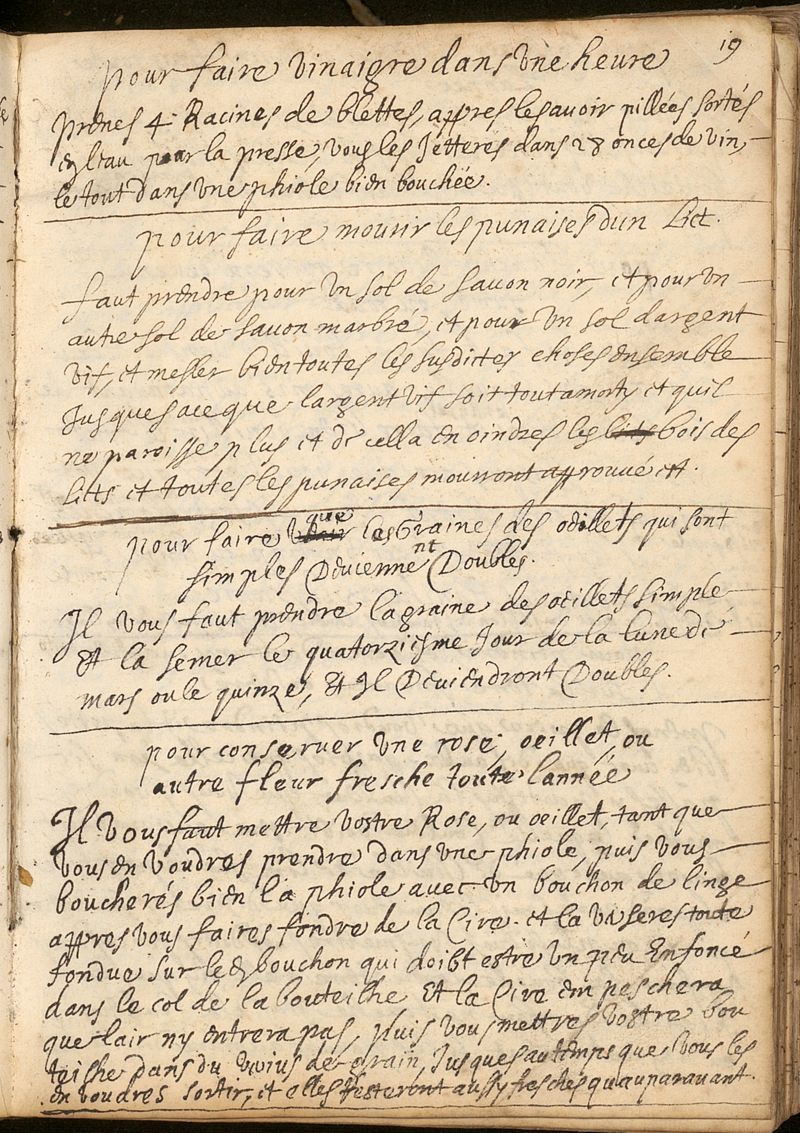 19
pour faire vinaigre dans vne heure
prenes 4 Racines de blettes, appres les auoir pillées sortés
leau pour la presse, vous les Jetterés dans 28 onces de vin,
le tout dans vne phiole bien bouchée.
pour faire mourir les punaises dun Lict.
faut prendre pour vn sol de sauon noir, et pour vn
autre sol de sauon marbré, et pour vn sol dargent
vif, et mesler bien toutes les susdictes choses ensemble
Jusques a ce que largent vif soit tout amorty et quil
ne paroisse plus et de cella en oindres les lits bois des
Licts et toutes les punaises mourront approuué est.
pour faire que les Graines des oeillets qui sont
simples Deuiennent Doubles.
Il vous faut prendre la graine des oeillets simple
Et la semer le quatorziesme Jour de la lune de
mars ou le quinze, Et Il Deuiendront Doubles.
pour conseruer vne rose, oeillet, ou
autre fleur fresche toute lannéé
Il vous faut mettre vostre Rose, ou oeillet, tant que
vous en voudres prendre dans vne phiole, puis vous
boucherés bien la phiole auec vn bouchon de linge
appres vous faires fondre de la Cire. et la toute
fondue sur le bouchon qui doibt estre vn peu Enfoncé
dans le col de la bouteilhe Et la Cire empeschera
que lair ny entrera pas, puis vous mettres vostre bou
teilhe dans du de grain, Jusques au temps que vous les
en voudres sortir, et elles resteront aussy fresches quauparauant.